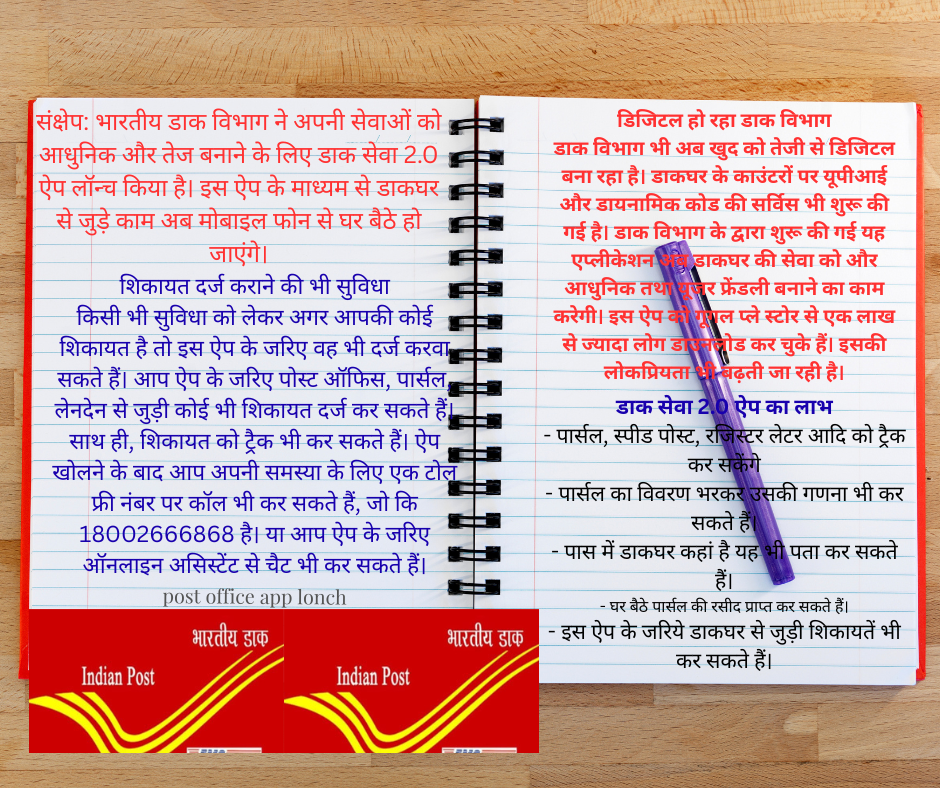 संक्षेप: भारतीय डाक विभाग ने अपनी सेवाओं को
आधुनिक और तेज बनाने के लिए डाक सेवा 2.0
ऐप लॉन्च किया है। इस ऐप के माध्यम से डाकघर
से जुड़े काम अब मोबाइल फोन से घर बैठे हो
जाएंगे।
शिकायत दर्ज कराने की भी सुविधा
किसी भी सुविधा को लेकर अगर आपकी कोई
शिकायत है तो इस ऐप के जरिए वह भी दर्ज करवा
सकते हैं। आप ऐप के जरिए पोस्ट ऑफिस, पार्सल,
लेनदेन से जुड़ी कोई भी शिकायत दर्ज कर सकते हैं।
साथ ही, शिकायत को ट्रैक भी कर सकते हैं। ऐप
खोलने के बाद आप अपनी समस्या के लिए एक टोल
फ्री नंबर पर कॉल भी कर सकते हैं, जो कि
18002666868 है। या आप ऐप के जरिए
ऑनलाइन असिस्टेंट से चैट भी कर सकते हैं।
post office app lonch
भारतीय डाक
Indian Post
भारतीय डाक
Indian Post
डिजिटल हो रहा डाक विभाग
डाक विभाग भी अब खुद को तेजी से डिजिटल
बना रहा है। डाकघर के काउंटरों पर यूपीआई
और डायनामिक कोड की सर्विस भी शुरू की
गई है। डाक विभाग के द्वारा शुरू की गई यह
एप्लीकेशन अब डाकघर की सेवा को और
आधुनिक तथा यूजर फ्रेंडली बनाने का काम
करेगी। इस ऐप को गूगल प्ले स्टोर से एक लाख
से ज्यादा लोग डाउनलोड कर चुके हैं। इसकी
लोकप्रियता भी बढ़ती जा रही है।
डाक सेवा 2.0 ऐप का लाभ
- पार्सल, स्पीड पोस्ट, रजिस्टर लेटर आदि को ट्रैक
कर सकेंगे
- पार्सल का विवरण भरकर उसकी गणना भी कर
सकते हैं।
- पास में डाकघर कहां है यह भी पता कर सकते
हैं।
- घर बैठे पार्सल की रसीद प्राप्त कर सकते हैं।
- इस ऐप के जरिये डाकघर से जुड़ी शिकायतें भी
कर सकते हैं।